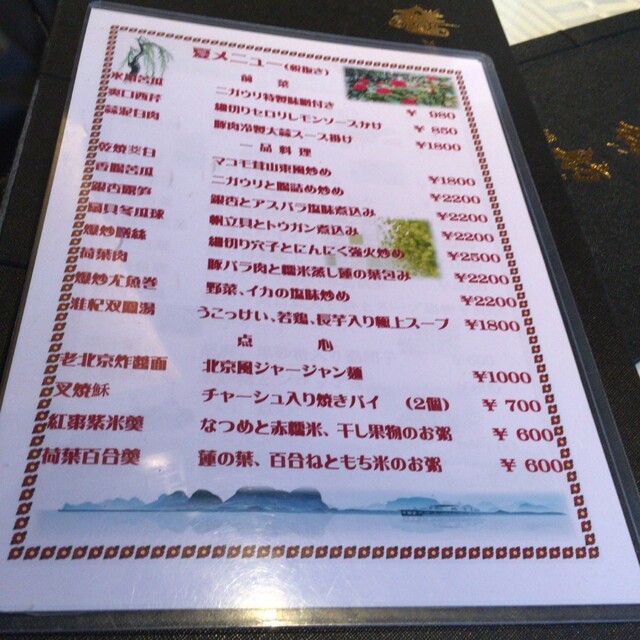 夏メニュー(税抜き)
前 菜
氷鎮苦瓜 ニガウリ特製味噌付き ¥ 980
爽口西芹 細切りセロリレモンソースかけ ¥ 850
蒜泥白肉 豚肉冷製大蒜ソース掛け ¥1800
一品料理
乾焼茭白 マコモ茸山東風炒め ¥1800
香腸苦瓜 ニガウリと腸詰め炒め ¥2200
銀杏蘆笋 銀杏とアスパラ塩味煮込み ¥2200
扇貝冬瓜球 帆立貝とトウガン煮込み ¥2200
爆炒膳絲 細切り穴子とにんにく強火炒め ¥2500
荷葉肉 豚バラ肉と糯米蒸し蓮の葉包み ¥2200
爆炒尤魚巻 野菜、イカの塩味炒め ¥2200
淮杞双鳳湯 うこっけい、若鶏、長芋入り極上スープ ¥1800
点 心
老北京炸醤面 北京風ジャージャン麺 ¥1000
叉焼酥 チャーシュ入り焼きパイ (2個) ¥ 700
紅棗紫米羹 なつめと赤糯米、干し果物のお粥 ¥ 600
荷葉百合羹 蓮の葉、百合ねともち米のお粥 ¥ 600